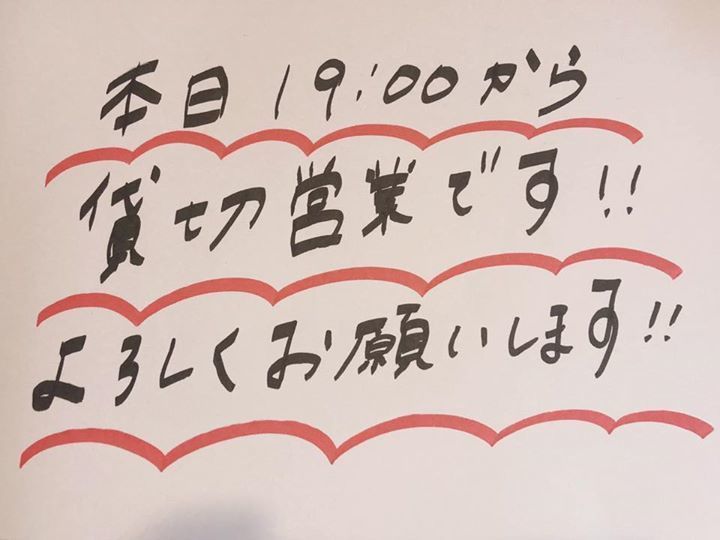 本日19:00から
貸切営業です!!
よろしくお願いします!!